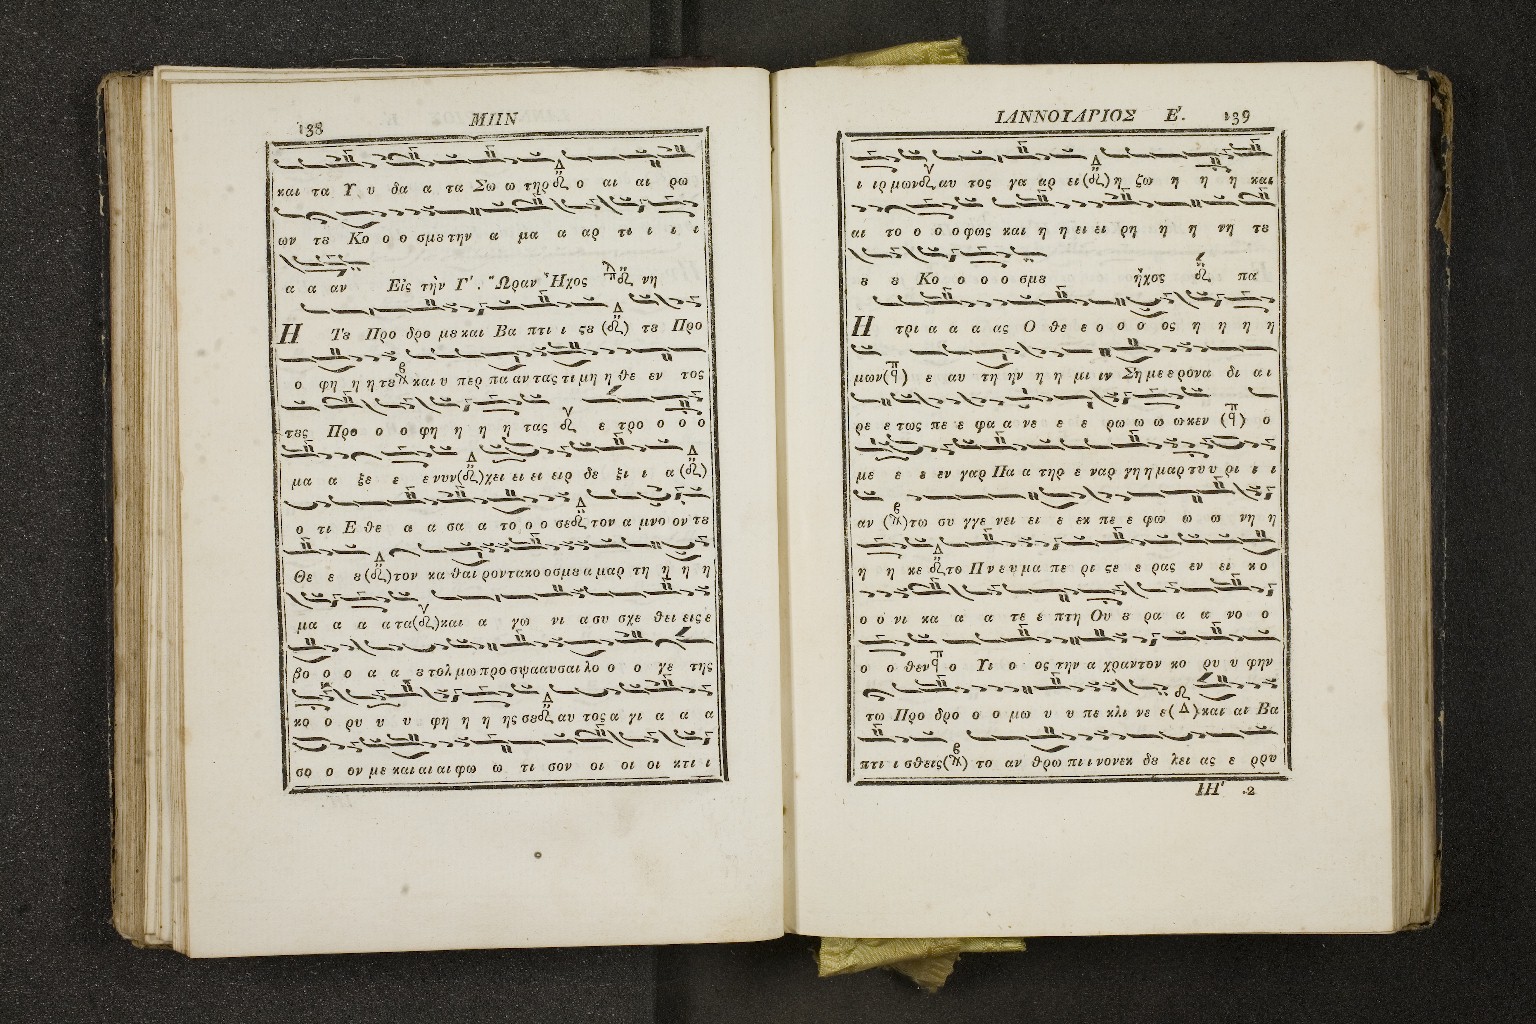 138
ΜΗΝ
και τα Υ υ δα α τα Σω ω τηρ ο αι αι ρω
ων τȣ Κο ο ο σμȣ την α μα α αρ τι ι ι ι
α α αν Εἰς τὴν Γ΄. Ὥραν Ἦχος νη
Η Τȣ Προ δρο μȣ και Βα πτι ι ςȣ ( ) τȣ Προ
ο φη η η τȣ και υ περ πα αν τας τι μη η θε εν τος
τȣς Προ ο ο φη η η η τας ε τρο ο ο ο
μα α ξε ε ε νυν( )χει ει ει ειρ δε ξι ι α ( )
ο τι Ε θε α α σα α το ο ο σε τον α μνο ον τȣ
Θε ε ȣ( )τον κα θαι ροντα κο οσμȣ α μαρ τη η η η
μα α α α τα( )και α γω νι α συ σχε θει εις ε
βο ο ο α α ȣ τολ μω προ σψααυσαι λο ο ο γε της
κο ο ρυ υ υ φη η η ης σȣ αυ τος α γι α α α
σο ο ον με και αι αι φω ω τι σον οι οι οι κτι ι
ΙΑΝΝΟΥΑΡΙΟΣ Ε΄. 139
ι ιρ μων αυ τος γα αρ ει( )η ζω η η η και
αι το ο ο ο φως και η η ει ει ρη η η νη τȣ
ȣ ȣ Κο ο ο ο σμȣ ἦχος πα
Η τρι α α α ας Ο θε ε ο ο ο ος η η η η
μων( ) ε αυ τη ην η η μι ιν Ση με ε ρονα δι αι
ρε ε τως πε ε φα α νε ε ε ρω ω ω ω κεν ( ) ο
με ε ε εν γαρ Πα α τηρ ε ναρ γη η μαρ τυ υ ρι ι ι
αν ( )τω συ γγε νει ει ε εκ πε ε φω ω ω νη η
η η κε το Πνευμα πε ρι ςε ε ρας εν ει κο
ο ο νι κα α α τε ε πτη Ου ȣ ρα α α νο ο
ο ο θεν ο Υι ο ος την α χραντον κο ρυ υ φην
τω Προ δρο ο ο μω υ υ πε κλι νε ε( )και αι Βα
πτι ι σθεις( ) το αν θρω πι ινονεκ δȣ λει ας ε ρρυ
ΙΗ΄ .2